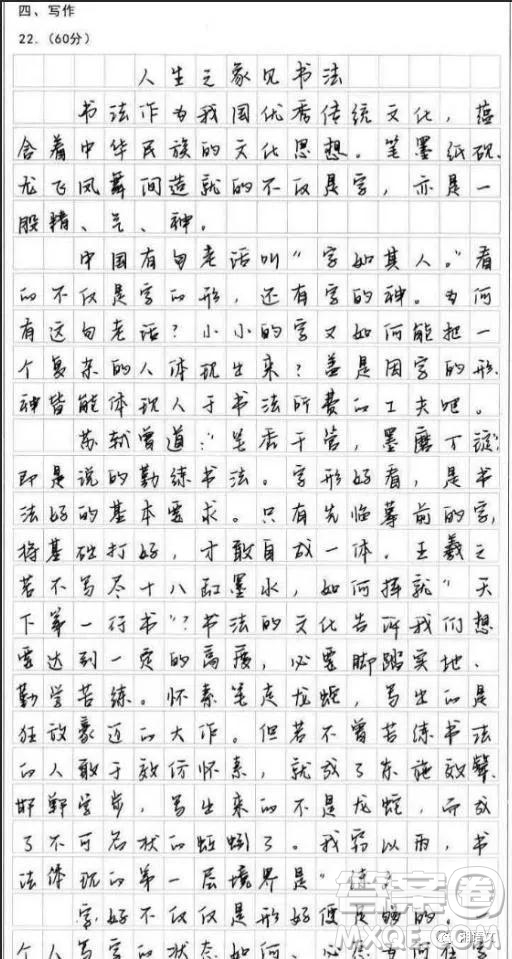 四、写作
22.（60分）
人生之象见书法
书法作为我国优秀传统文化，蕴
含着中华民族的文化思想。笔墨纸砚、
龙飞凤舞间造就的不仅是字，亦是一
股精、气、神。
中国有句老话叫“字如其人。”看
的不仅是字的形，还有字的神。为何
有这句老话？小小的字又如何能把一
个复杂的人体现出来？盖是因字的形
神皆能体现人于书法所费的工夫吧。
苏轼曾道：“笔秃千管，墨磨万锭”
即是说的勤练书法。字形好看，是书
法好的基本要求。只有先临摹前的字，
将基础打好，才敢自成一体。王羲之
若不写尽十八缸墨水，如何挥就“天
下第一行书”？书法的文化告诉我们想
要达到一定的高度，必要脚踏实地、
勤学苦练。怀素笔走龙蛇，写出的是
狂放豪迈的大作。但若不曾苦练书法
的人敢于效仿怀素，就成了东施效颦、
邯郸学步，写出来的不是龙蛇，而成
了不可名状的蚯蚓了。我窃以为，书
法体现的第一层境界是“
字好不仅仅是形好便足够的。一
个人写字的状态如何、
答案圈
MXQE.COM